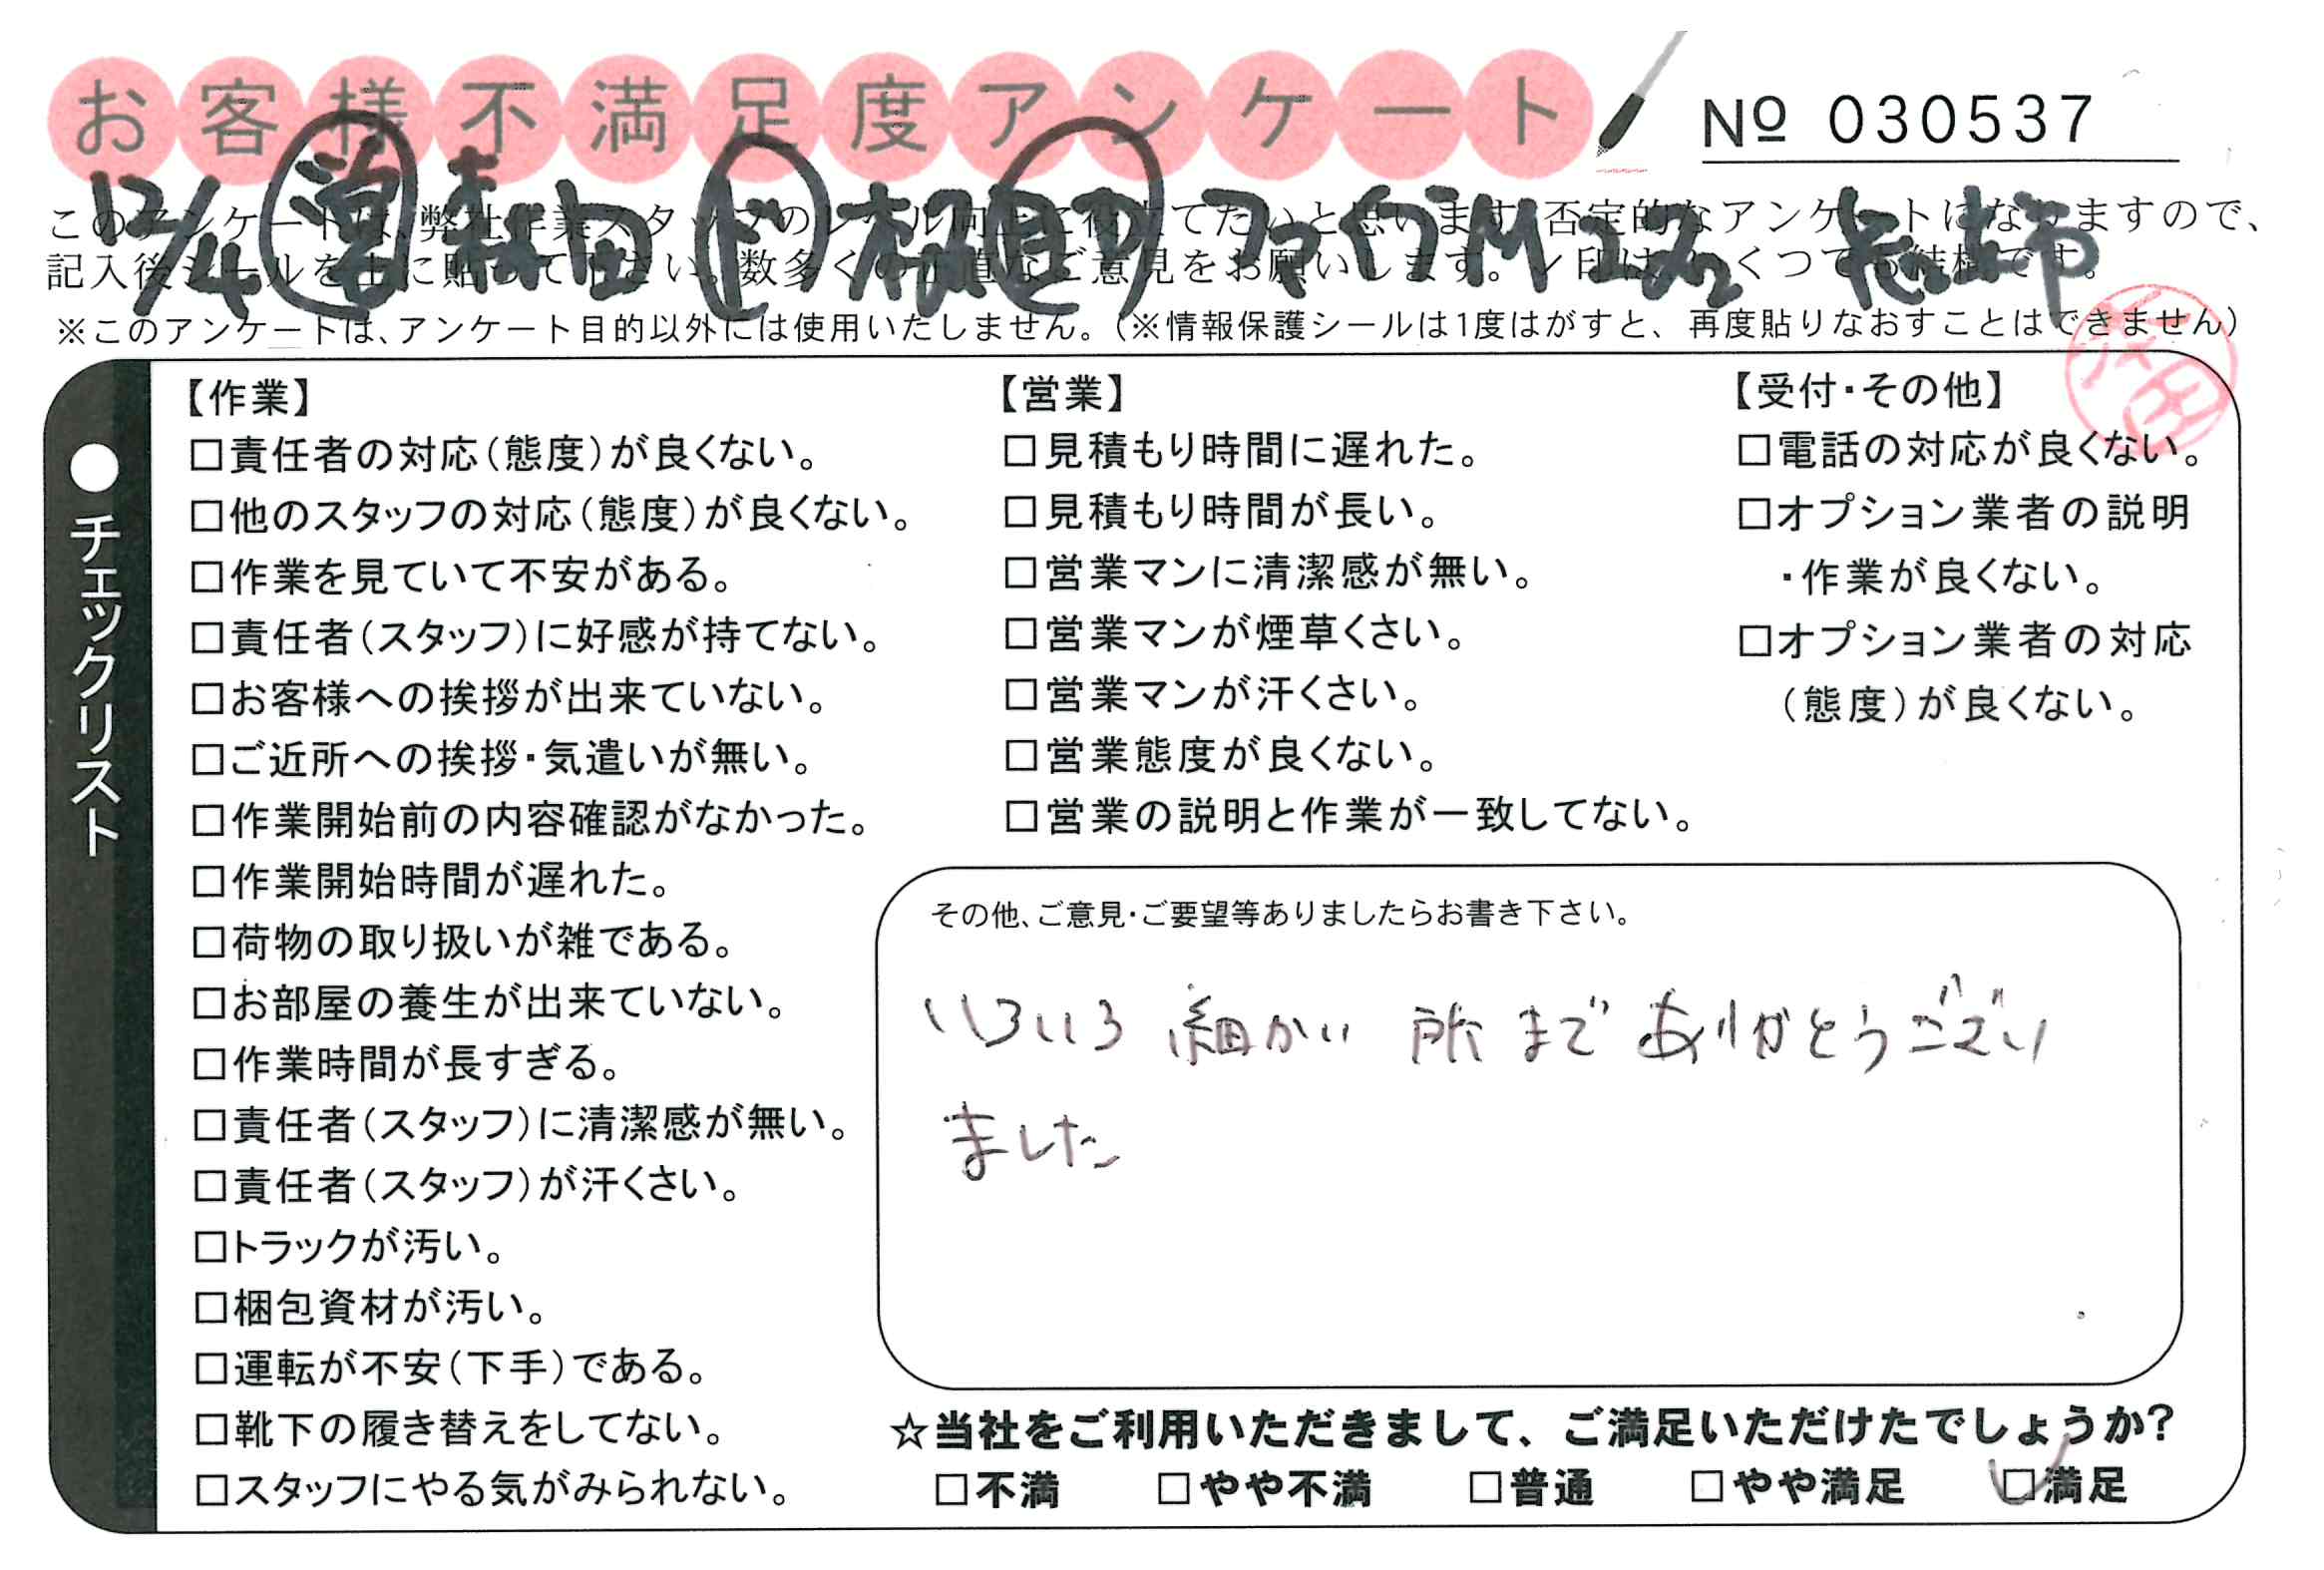 お客様不満足度アンケート
№ 030537
12/4 営 森田 ド 桜田
このアンケートは、弊社作業スタッフのレベル向上に役立てたいと思います。否定的なアンケートになりますので、
記入後シールを上に貼って下さい。数多くの正直なご意見をお願いします。✓印はいくつでも結構です。
※このアンケートは、アンケート目的以外には使用いたしません。(※情報保護シールは1度はがすと、再度貼りなおすことはできません)
●チェックリスト
【作業】
□責任者の対応(態度)が良くない。
□他のスタッフの対応(態度)が良くない。
□作業を見ていて不安がある。
□責任者(スタッフ)に好感が持てない。
□お客様への挨拶が出来ていない。
□ご近所への挨拶・気遣いが無い。
□作業開始前の内容確認がなかった。
□作業開始時間が遅れた。
□荷物の取り扱いが雑である。
□お部屋の養生が出来ていない。
□作業時間が長すぎる。
□責任者(スタッフ)に清潔感が無い。
□責任者(スタッフ)が汗くさい。
□トラックが汚い。
□梱包資材が汚い。
□運転が不安(下手)である。
□靴下の履き替えをしてない。
□スタッフにやる気がみられない。
【営業】
□見積もり時間に遅れた。
□見積もり時間が長い。
□営業マンに清潔感が無い。
□営業マンが煙草くさい。
□営業マンが汗くさい。
□営業態度が良くない。
□営業の説明と作業が一致してない。
【受付・その他】
□電話の対応が良くない。
□オプション業者の説明
・作業が良くない。
□オプション業者の対応
(態度)が良くない。
その他、ご意見・ご要望等ありましたらお書き下さい。
いろいろ細かい所までありがとうござい
ました
☆当社をご利用いただきまして、ご満足いただけたでしょうか?
□不満 □やや不満 □普通 □やや満足 □満足